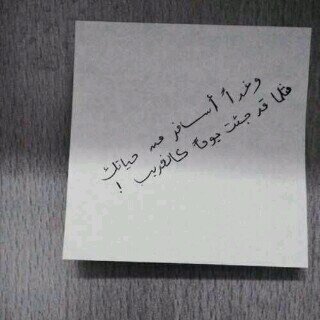 وغداً أسافر من حياتك
مثلما قد جئت يوماً كالغريب !